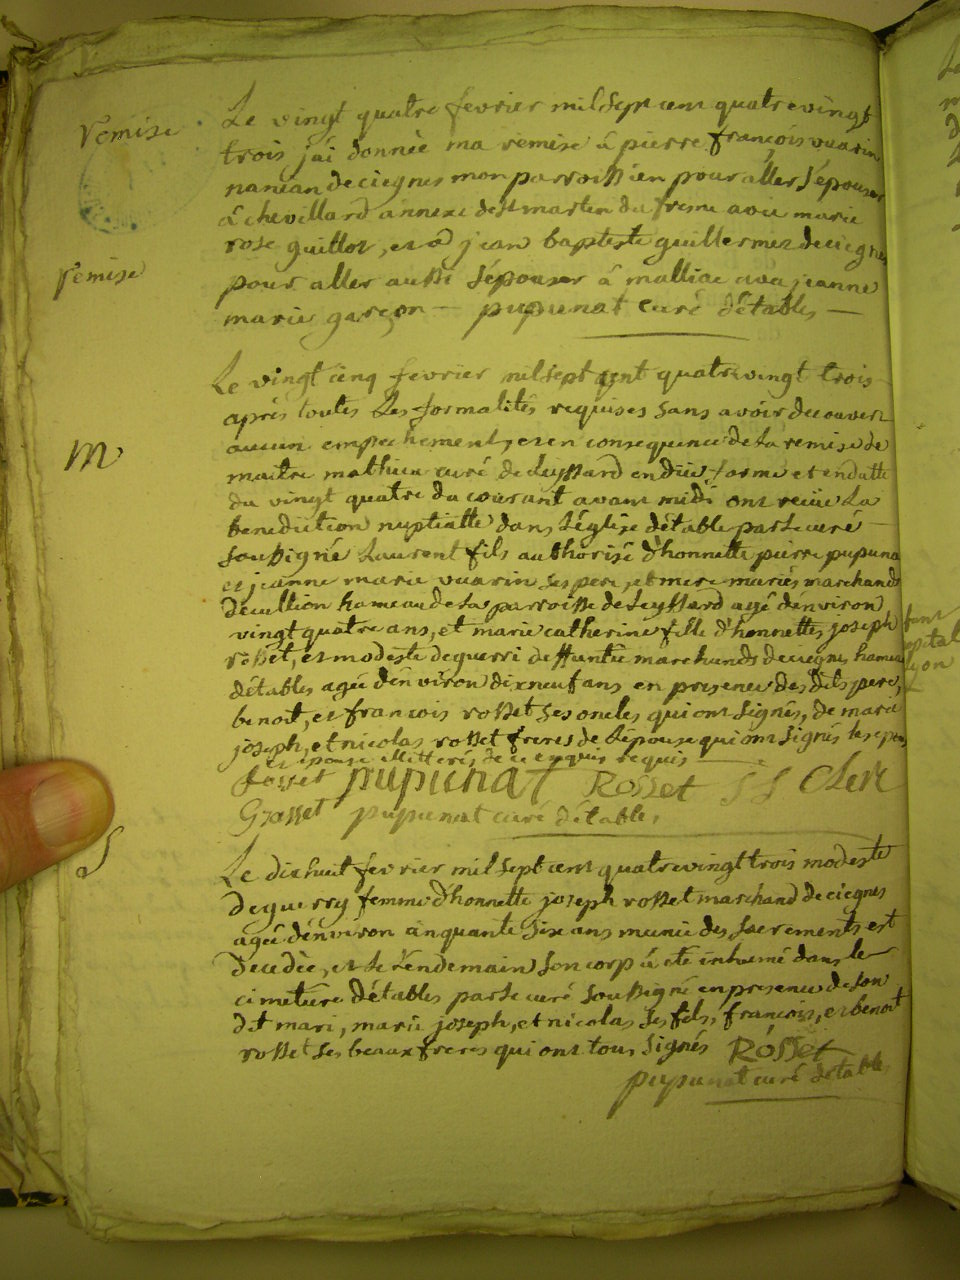 remise
Le vingt quatre fevrier mil sept cent quatre vingt
trois j'ai donnée ma remise à pierre françois vuarin
nanéan de ciegnes mon parroissien pour aller s'épouser
à chevillard annexe de st martin du fresne avec marie
rose guillot, et à jean baptiste guillermet de ciegnes
remise
pour aller aussi s'épouser à malliac avec jeanne
marie garçon — pupunat curé d'étables —
Le vingt cinq fevrier mil sept cent quatre vingt trois
après toutes les formalités requises sans avoir decouvert
aucun empechement, et en consequence de la remise de
M
maitre mathieu curé de leyssard en due forme et en datte
du vingt quatre du courant avant midi ont reçue la
benediction nuptialle dans l'église d'étable par le curé
soussigné Laurent fils authorisé d'honnette pierre pupuna
et jeanne marie vuarin ses pere, et mere mariés marchands
de cullion hameau de la parroisse de leyssard agé d'environ
vingt quatre ans, et marie catherine fille d'honnettes joseph
rosset, et modeste dequerri deffuntte marchands de ciegnes hameau
d'étables agée d'environ dixneuf ans en presence des dits pere,
benoit, et francois rosset ses oncles qui ont signés, de marie
joseph, et nicolas rosset freres de l'épouse qui ont signés les epoux
et épouse illitterés de ce enquis requis
Rosset pupunat Rosset J J Clerc
Grasset pupunat curé d'étable,
S
Le dix huit fevrier mil sept cent quatre vingt trois modeste
deguerry femme d'honnette joseph rosset marchand de ciegnes
agée d'environ cinquante six ans munie des sacrements est
decedée, et le lendemain son corp a été inhumé dans le
cimetière d'étables par le curé soussigné en presence de son
dit mari, marie joseph, et nicolas ses fils, francois, et benoit
rosset ses beaux freres qui ont tous signés Rosset
pupunat curé d'étables